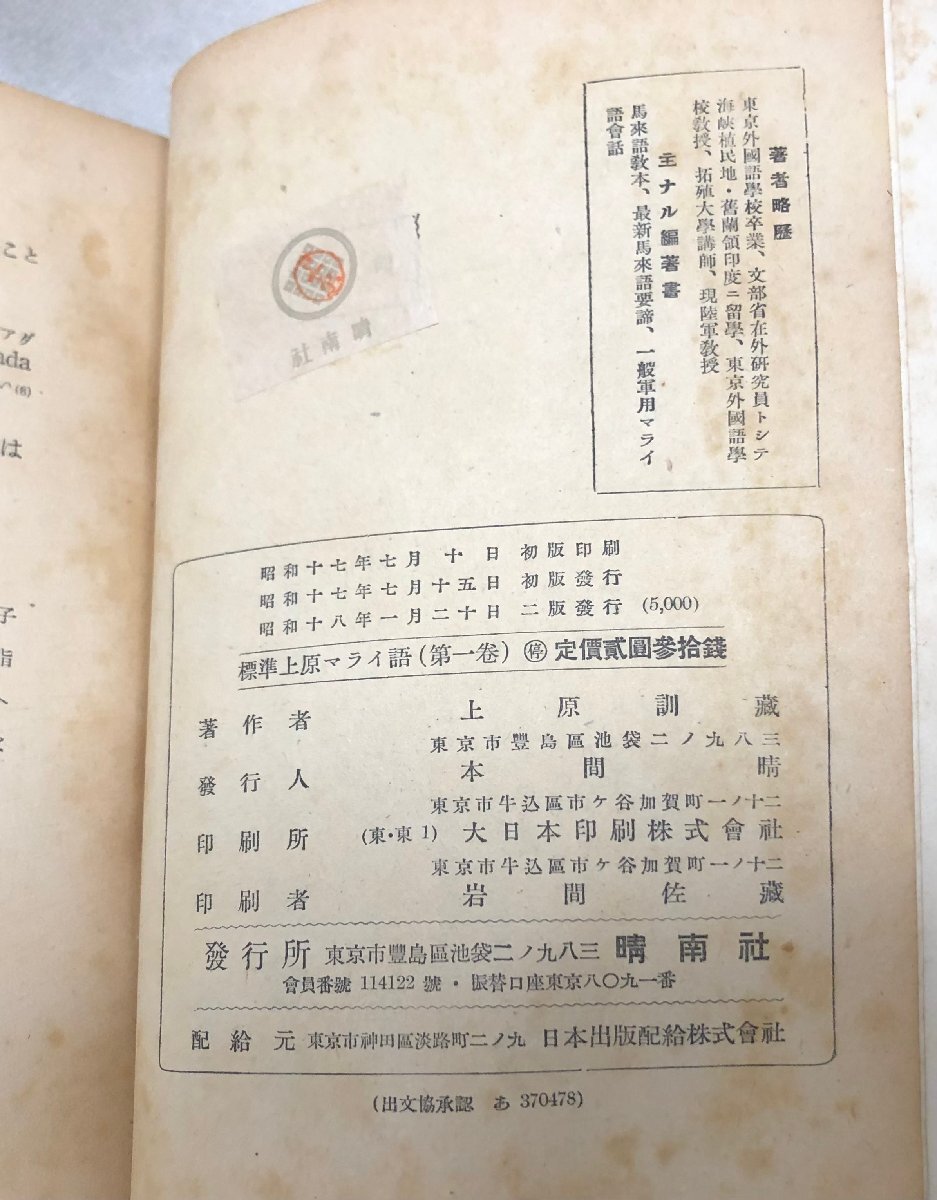 こと
アダ
nda
(6)
は
子
指
著者略歷
東京外國語學校卒業、文部省在外研究員トシテ
海峡植民地・舊蘭領印度ニ留學、東京外國語學
校敎授、拓殖大學講師、現陸軍敎授
主ナル編著書
馬來語敎本、最新馬來語要諦、一般軍用マライ
語會話
晴南社
昭和十七年七月十日 初版印刷
昭和十七年七月十五日 初版發行
昭和十八年一月二十日 二版發行 (5,000)
標準上原マライ語(第一卷) 停 定價貳圓參拾錢
著作者 上原訓藏
東京市豐島區池袋二ノ九八三
發行人 本間晴
東京市牛込區市ケ谷加賀町一ノ十二
印刷所 (東・東1) 大日本印刷株式會社
東京市牛込區市ケ谷加賀町一ノ十二
印刷者 岩間佐藏
發行所 東京市豐島區池袋二ノ九八三 晴南社
會員番號 114122 號・振替口座東京八〇九一番
配給元 東京市神田區淡路町二ノ九 日本出版配給株式會社
(出文協承認 あ 370478)